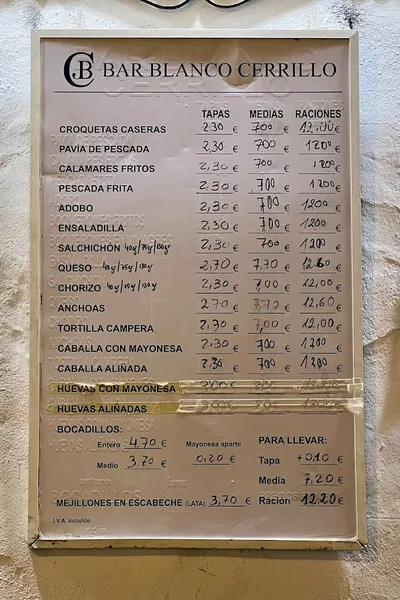 CJB BAR BLANCO CERRILLO
TAPAS MEDIAS RACIONES
CROQUETAS CASERAS 2,30 € 700 € 12,00 €
PAVIA DE PESCADA 2,30 € 700 € 1200 €
CALAMARES FRITOS 2,30 € 700 € 1200 €
PESCADA FRITA 2,30 € 700 € 1200 €
ADOBO 2,30 € 700 € 1200 €
ENSALADILLA 2,30 € 700 € 1200 €
SALCHICHÓN 40g/75g/130gr 2,30 € 700 € 1200 €
QUESO 40g/75g/130g 2,70 € 7,70 € 12,60 €
CHORIZO 40g/75g/130g 2,30 € 7,00 € 12,00 €
ANCHOAS 2,70 € 7,70 € 12,60 €
TORTILLA CAMPERA 2,30 € 7,00 € 12,00 €
CABALLA CON MAYONESA 2,30 € 700 € 1200 €
CABALLA ALIÑADA 2,30 € 700 € 1200 €
HUEVAS CON MAYONESA € € €
HUEVAS ALIÑADAS € € €
BOCADILLOS: PARA LLEVAR:
Entero 4,70 € Mayonesa aparte 0,20 € Tapa +0,10 €
Medio 3,70 € Media 7,20 €
MEJILLONES EN ESCABECHE (LATA) 3,70 € Ración 12,20 €
I.V.A. incluido